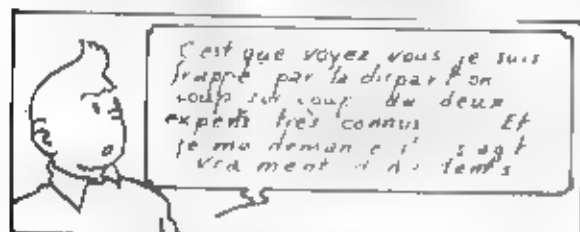 C'est que voyez vous je suis
frappé par la disparition
coup sur coup de deux
experts très connus Et
je me demande s'il s'agit
vraiment